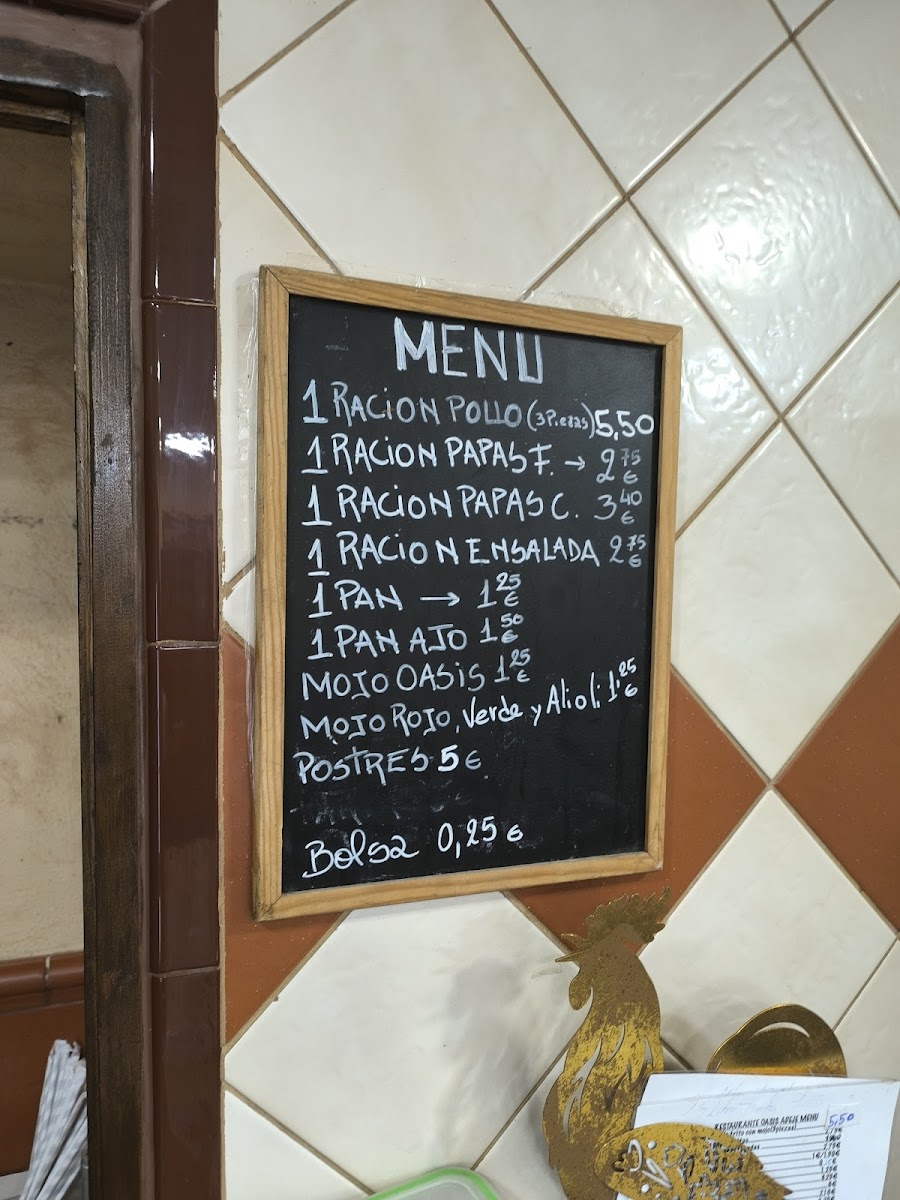 MENU
1 RACION POLLO (3 Piezas) 5,50
1 RACION PAPAS F. → 2 75 €
1 RACION PAPAS C. 3 40 €
1 RACION ENSALADA 2 75 €
1 PAN → 1 25 €
1 PAN AJO 1 50 €
MOJO OASIS 1 25 €
MOJO ROJO, Verde y Alioli 1, 25 €
POSTRES 5 €
Bolsa 0,25 €
RESTAURANTE OASIS MENU
5,50